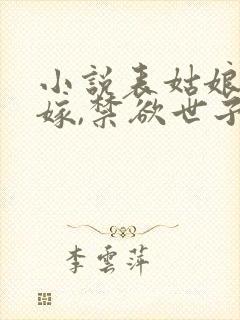 小說表姑娘
嫁,禁欲世子
李雲萍